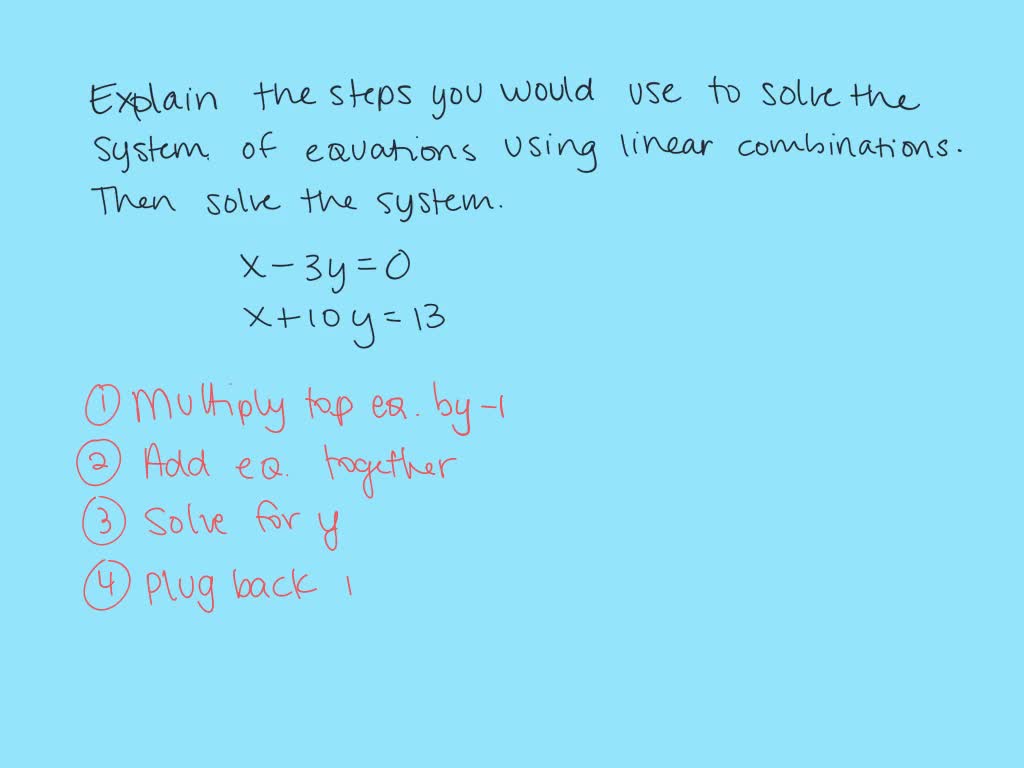 Explain the steps you would use to solve the
system of equations using linear combinations.
Then solve the system.
x - 3y = 0
x + 10y = 13
① Multiply top eq. by -1
② Add eq. together
③ Solve for y
④ plug back